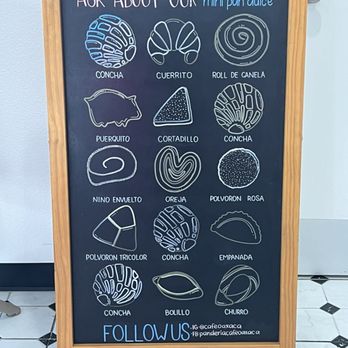 ASK ABOUT OUR mini pan dulce
CONCHA CUERRITO ROLL DE CANELA
PUERQUITO CORTADILLO CONCHA
NINO ENVUELTO OREJA POLVORON ROSA
POLVORON TRICOLOR CONCHA EMPANADA
CONCHA BOLILLO CHURRO
FOLLOW US IG @cafeoaxaca
FB panderiacafeoaxaca